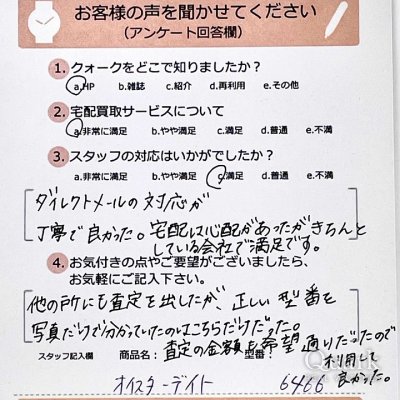 お客様の声を聞かせてください
(アンケート回答欄)
1. クォークをどこで知りましたか?
a.HP b.雑誌 c.紹介 d.再利用 e.その他
2. 宅配買取サービスについて
a.非常に満足 b.やや満足 c.満足 d.普通 e.不満
3. スタッフの対応はいかがでしたか?
a.非常に満足 b.やや満足 c.満足 d.普通 e.不満
ダイレクトメールの対応が
丁寧で良かった。宅配は心配があったがきちんと
している会社で満足です。
4. お気付きの点やご要望がございましたら、
お気軽にご記入下さい。
他の所にも査定を出したが、正しい型番を
写真だけで分かっていたのはこちらだけだった。
査定の金額も希望通りだったので
利用して
良かった。
スタッフ記入欄 商品名: 型番
オイスターデイト 6466